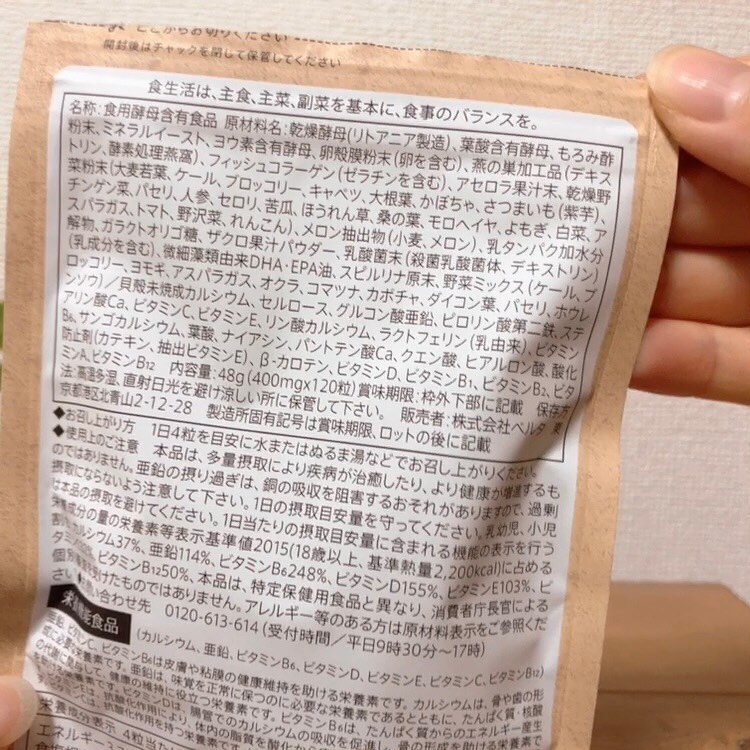 どこからでもお切りください
開封後はチャックを閉して保管してください
食生活は、主食、主菜、副菜を基本に、食事のバランスを。
名称:食用酵母含有食品 原材料名:乾燥酵母(リトアニア製造)、葉酸含有酵母、もろみ酢
粉末、ミネラルイースト、ヨウ素含有酵母、卵殻膜粉末(卵を含む)、燕の巣加工品(デキス
トリン、酵素処理燕窩)、フィッシュコラーゲン(ゼラチンを含む)、アセロラ果汁末、乾燥野
菜粉末(大麦若葉、ケール、ブロッコリー、キャベツ、大根葉、かぼちゃ、さつまいも(紫芋)、
チンゲン菜、パセリ、人参、セロリ、苦瓜、ほうれん草、桑の葉、モロヘイヤ、よもぎ、白菜、ア
スパラガス、トマト、野沢菜、れんこん)、メロン抽出物(小麦、メロン)、乳タンパク加水分
解物、ガラクトオリゴ糖、ザクロ果汁パウダー、乳酸菌末(殺菌乳酸菌体、デキストリン)
(乳成分を含む)、微細藻類由来DHA・EPA油、スピルリナ原末、野菜ミックス(ケール、ブ
ロッコリー、ヨモギ、アスパラガス、オクラ、コマツナ、カボチャ、ダイコン葉、パセリ、ホウレ
ンソウ)/貝殻未焼成カルシウム、セルロース、グルコン酸亜鉛、ピロリン酸第二鉄、ステ
アリン酸Ca、ビタミンC、ビタミンE、リン酸カルシウム、ラクトフェリン(乳由来)、ビタミン
B₆、サンゴカルシウム、葉酸、ナイアシン、パントテン酸Ca、クエン酸、ヒアルロン酸、酸化
防止剤(カテキン、抽出ビタミンE)、β-カロテン、ビタミンD、ビタミンB₁、ビタミンB₂、ビタ
ミンA、ビタミンB₁₂ 内容量:48g(400mg×120粒) 賞味期限:枠外下部に記載 保存方
法:高温多湿、直射日光を避け涼しい所に保管して下さい。 販売者:株式会社ベルタ 東
京都港区北青山2-12-28 製造所固有記号は賞味期限、ロットの後に記載
◆お召し上がり方 1日4粒を目安に水またはぬるま湯などでお召し上がりください。
◆使用上のご注意 本品は、多量摂取により疾病が治癒したり、より健康が増進するも
のではありません。亜鉛の摂り過ぎは、銅の吸収を阻害するおそれがありますので、過剰
摂取にならないよう注意して下さい。1日の摂取目安量を守ってください。乳幼児、小児
は本品の摂取を避けてください。1日当たりの摂取目安量に含まれる機能の表示を行う
栄養成分の量の栄養素等表示基準値2015(18歳以上、基準熱量2,200kcal)に占める
割合:カルシウム37%、亜鉛114%、ビタミンB₆248%、ビタミンD155%、ビタミンE103%、ビ
タミン B₁₂50%、本品は、特定保健用食品と異なり、消費者庁長官による
個別審査を受けたものではありません。アレルギー等のある方は原材料表示をご参照くだ
い合わせ先 0120-613-614(受付時間/平日9時30分〜17時)
栄養機能食品
(カルシウム、亜鉛、ビタミンB₆、ビタミンD、ビタミンE、ビタミンC、ビタミンB₁₂)
亜鉛、ビタミンC、ビタミンB₆は皮膚や粘膜の健康維持を助ける栄養素です。カルシウムは、骨や歯の形
成に必要な栄養素です。亜鉛は、味覚を正常に保つのに必要な栄養素であるとともに、たんぱく質・核酸
の代謝に関与して、健康の維持に役立つ栄養素です。ビタミンB₆は、たんぱく質からのエネルギー産生
ビタミンDは、腸管でのカルシウムの吸収を促進し、骨の形成を助ける栄養で
ビタミンEは、抗酸化作用により、体内の脂質を酸化から
抗酸化作用を持つ栄養素です。
栄養成分表示 4粒当た
エネルギー